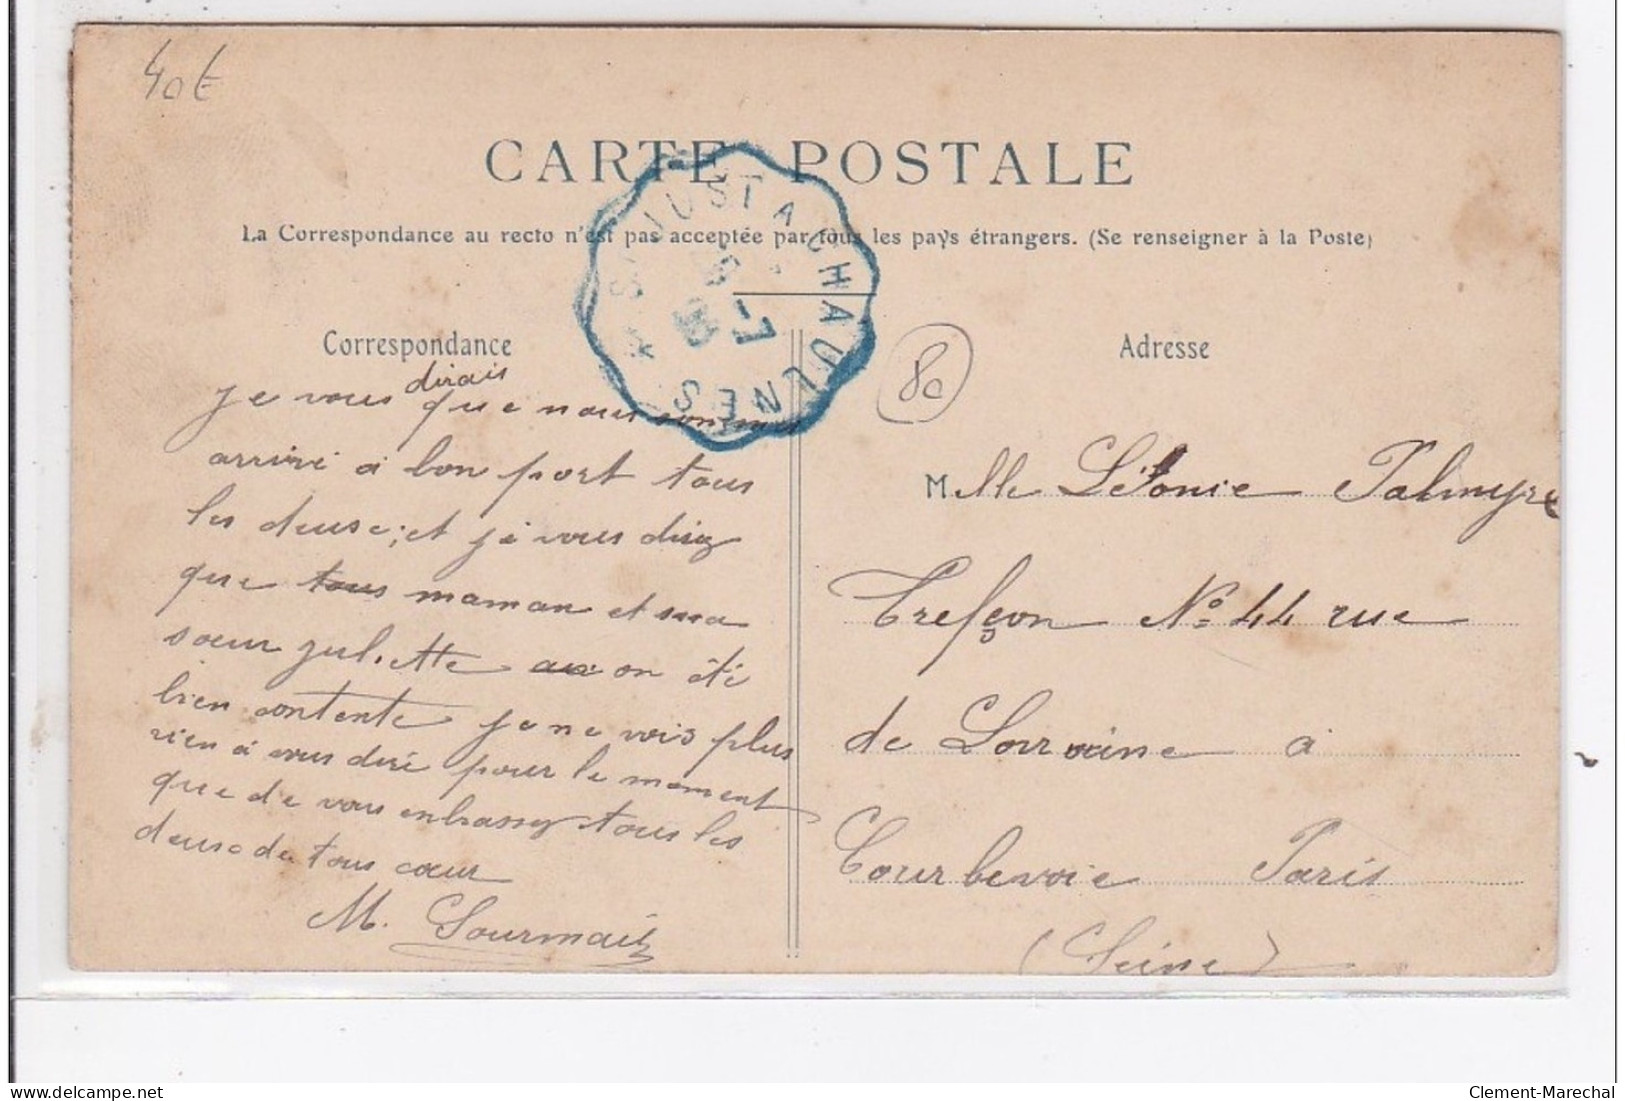 40€
CARTE POSTALE
La Correspondance au recto n'est pas acceptée par tous les pays étrangers. (Se renseigner à la Poste)
ST JUST A CHAULNES
Correspondance
je vous dirais que nous sommes
arrivé a bon port tous
les deuse; et je vous direz
que tous maman et ma
sœur juliette on été
bien contente je ne vois plus
rien a vous diré pour le moment
que de vous enbrassez tous les
deuse de tous cœur
M. Gourmail
80
Adresse
Melle Léonie Palmyre
Trefçon No 44 rue
de Lorraine a
Courbevoie Paris
(Seine)
delcampe.net
Clement-Marechal